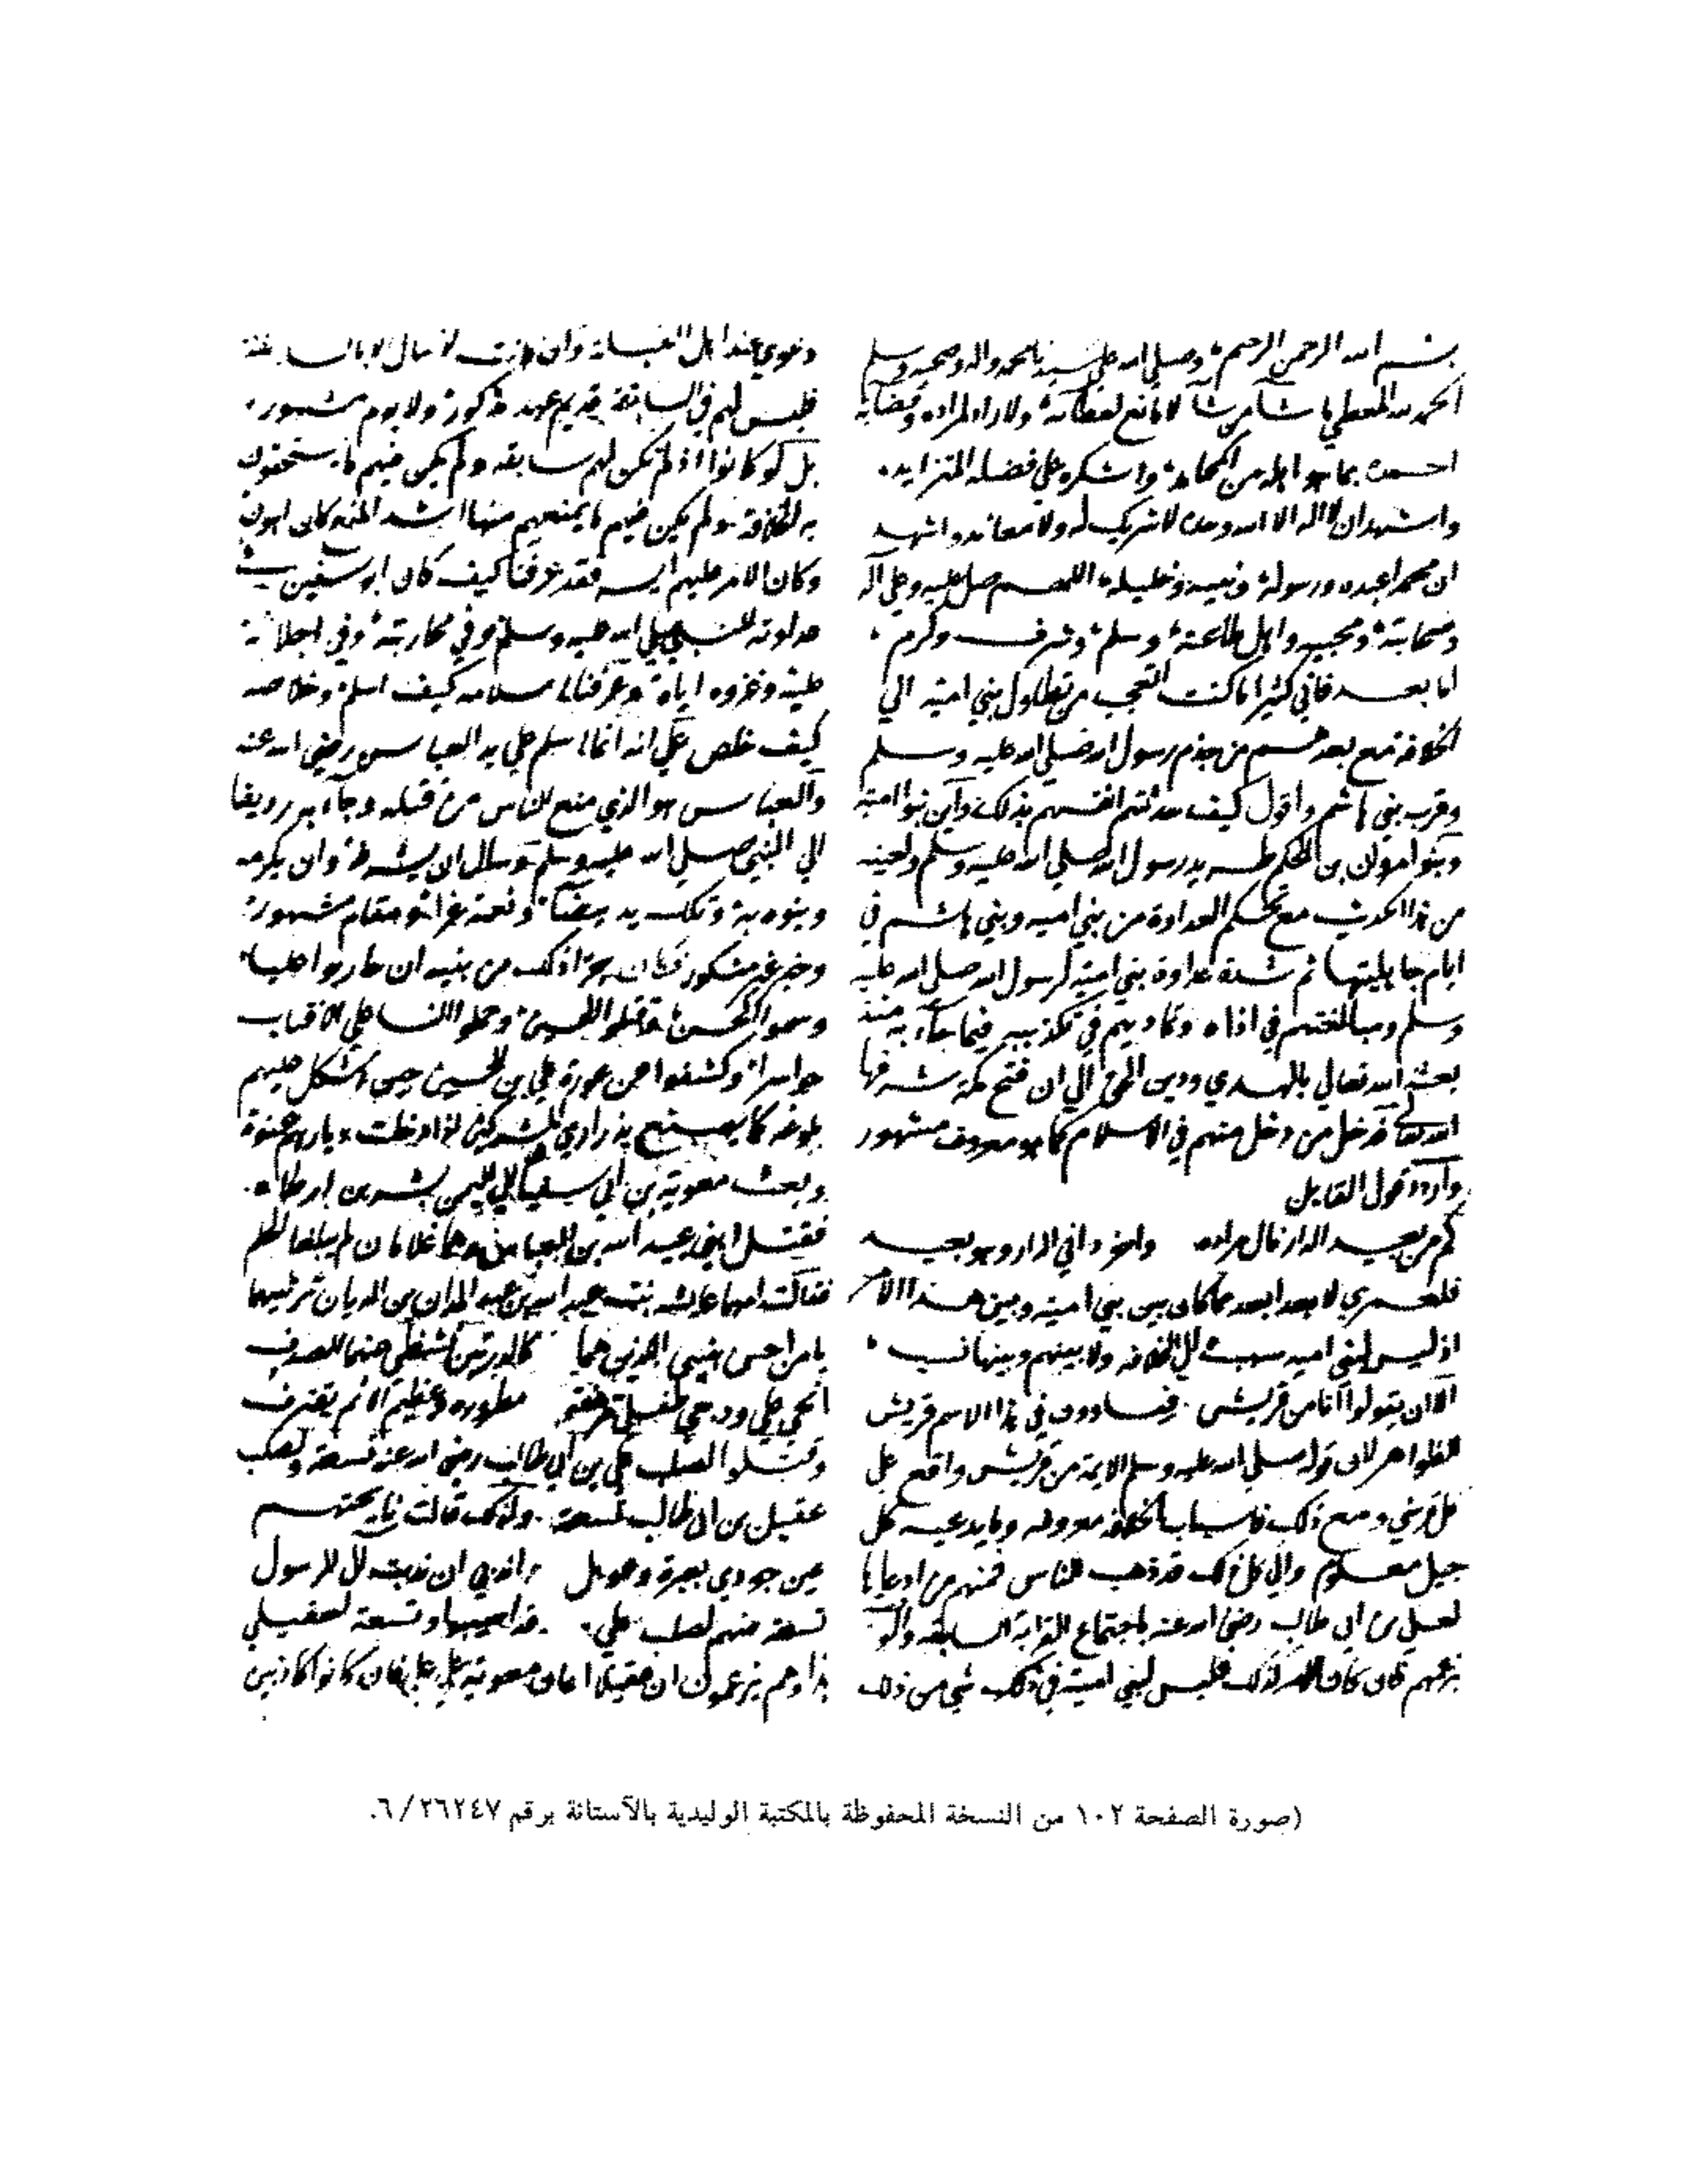 بسم الله الرحمن الرحيم وصلى الله على سيدنا محمد واله وصحبه وسلم
الحمد لله المعطي ما شآ من شآ لا مانع لعطائه ولا راد لمراده وقضايه
احمده بما هو اهله من المحامد واشكره علي فضله المتزايد
واشهد ان لا اله الا الله وحده لا شريك له ولا معاند واشهد
ان محمدا عبده ورسوله ونبيه وخليله اللهم صل عليه وعلى آله
وصحابته ومحبيه واهل طاعته وسلم وشرف وكرم
اما بعد فاني كثيرا ما كنت اتعجب من تطاول بني امية الي
الخلافة مع بعدهم من جذم رسول الله صلى الله عليه وسلم
وقرب بني هاشم واقول كيف حدثتهم انفسهم بذلك واين بنوا امية
وبنوا مروان بن الحكم طريد رسول الله صلى الله عليه وسلم ولعينه
من هذا الحديث مع تحكم العداوة من بني اميه وبني هاشم في
ايام جاهليتها ثم شدة عداوة بني امية لرسول الله صلى الله عليه
وسلم ومبالغتهم في اذاه وتماديهم في تكذيبه فيما جآء به منذ
بعثه الله تعالي بالهدي ودين الحق الي ان فتح مكة شرفها
الله تعالى فدخل من دخل منهم في الاسلام كما هو معروف مشهور
واردد قول القايل
كم من بعيد الدار نال مراده واخر داني الدار وهو بعيد
فلعمري لا بعد ابعد مما كان بين بني امية وبين هذا الامر
اذ ليس لبني اميه سبب الي الخلافه ولا بينهم وبينها نسب
الا ان يقولوا انا من قريش فيساوون في هذا الاسم قريش
الظواهر لان قوله صلى الله عليه وسلم الايمة من قريش واقع على
كل قرشي ومع ذلك فاسباب الخلافة معروفه وما يدعيه كل
جيل معلوم والي كل ذلك قد ذهب الناس فمنهم من ادعاها
لعلي بن ابي طالب رضي الله عنه باجتماع القرابة والسابقه والوصية
بزعمهم فان كان الامر كذلك فليس لبني امية في ذلك شي من ذلك
دعوي عند اهل القبلة وان كانت لا تنال الا بالسابقة
فليس لهم في السابقة قديم عهد مذكور ولا يوم مشهور
بل لو كانوا اذ لم تكن لهم سابقه ولم يكن فيهم ما يستحقون
به الخلافة ولم يكن فيهم ما يمنعهم منها اشد المنع كان اهون
وكان الامر عليهم ايسر فقد عرفنا كيف كان ابو سفين في
عداوته للنبي صلى الله عليه وسلم وفي محاربته وفي اجلابه
عليه وغزوه اياه وعرفنا اسلامه كيف اسلم وخلاصه
كيف خلص علي انه انما اسلم علي يد العباس رضي الله عنه
والعباس هو الذي منع الناس من قتله وجآ به رديفا
الي النبي صلى الله عليه وسلم وسال ان يشرفه وان يكرمه
وينوه به وتلك يد بيضآ ونعمة غرا ومقام مشهور
وخبر غير منكور فكان جزا ذلك من بنيه ان حاربوا عليا
وسموا الحسن وقتلوا الحسين وحملوا النسا علي الاقتاب
حواسرا وكشفوا عن عورة علي بن الحسين حين اشكل عليهم
بلوغه كما يصنع بذراري المشركين اذا دخلت ديارهم عنوة
وبعث معوية بن ابي سفيان الي اليمن بسر بن ارطاه
فقتل ابني عبيد الله بن العباس وهما غلامان لم يبلغا الحلم
فقالت امهما عايشه بنت عبد الله بن عبد المدان بن الديان ترثيهما
يا من احس بنيي الذين هما كالدرتين تشظي عنهما الصدف
انحي علي ودجي طفلي مرهفة مطرورة وعظيم الاثم يقترف
وقتلوا لصلب علي بن ابي طالب رضي الله عنه تسعة ولصلب
عقيل بن ابي طالب تسعة ولذلك قالت نايحتهم
عين جودي بعبرة وعويل واندبي ان ندبت آل الرسول
تسعة منهم لصلب علي قد اصيبوا وتسعة لعقيل
هذا وهم يزعمون ان عقيلا اعان معوية علي علي فان كانوا كاذبين
(صورة الصفحة ١٠٢ من النسخة المحفوظة بالمكتبة الوليدية بالآستانة برقم ٦/٢٦٢٤٧.